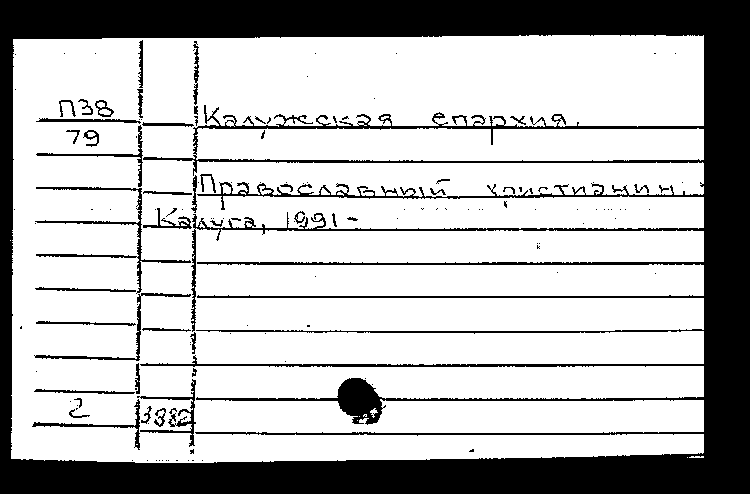 П38 Калужская епархия.
79
Православный христианин. -
Калуга, 1991 -
2 3882